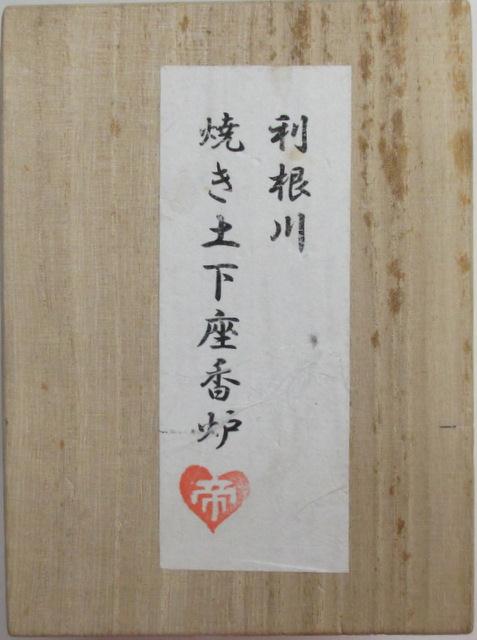 利根川
焼き土下座香炉
帝